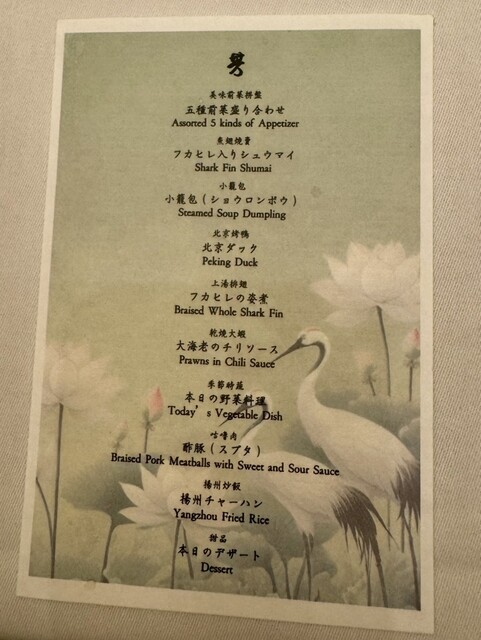 美味前菜拼盤
五種前菜盛り合わせ
Assorted 5 kinds of Appetizer
魚翅燒賣
フカヒレ入りシュウマイ
Shark Fin Shumai
小籠包
小籠包(ショウロンポウ)
Steamed Soup Dumpling
北京烤鴨
北京ダック
Peking Duck
上湯排翅
フカヒレの姿煮
Braised Whole Shark Fin
乾燒大蝦
大海老のチリソース
Prawns in Chili Sauce
季節時蔬
本日の野菜料理
Today's Vegetable Dish
咕嚕肉
酢豚(スブタ)
Braised Pork Meatballs with Sweet and Sour Sauce
揚州炒飯
揚州チャーハン
Yangzhou Fried Rice
甜品
本日のデザート
Dessert